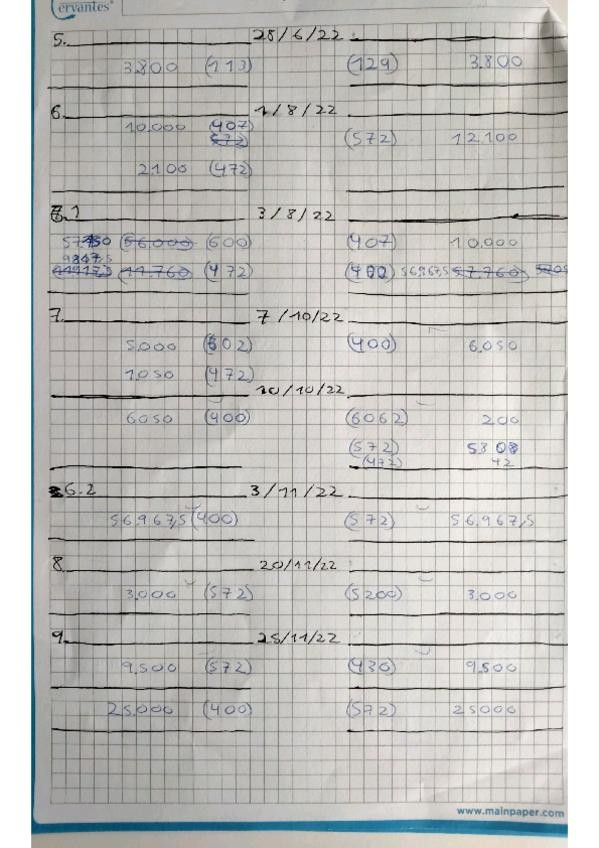 Cervantes®
5. 28/6/22
3.800 (113) (129) 3.800
6. 1/8/22
10.000 (407)
(572) 12.100
2100 (472)
6.1 3/8/22
(56.000) (600) (407) 10.000
9847,5
(11.760) (472) (400) 56.967,5 57.760
7. 7/10/22
5.000 (602) (400) 6.050
1.050 (472)
10/10/22
6050 (400) (6062) 200
(572) 5808
(472) 42
6.2 3/11/22
56.967,5 (400) (572) 56.967,5
8 20/11/22
3.000 (572) (5200) 3.000
9. 25/11/22
9.500 (572) (430) 9.500
25.000 (400) (572) 25.000
www.mainpaper.com